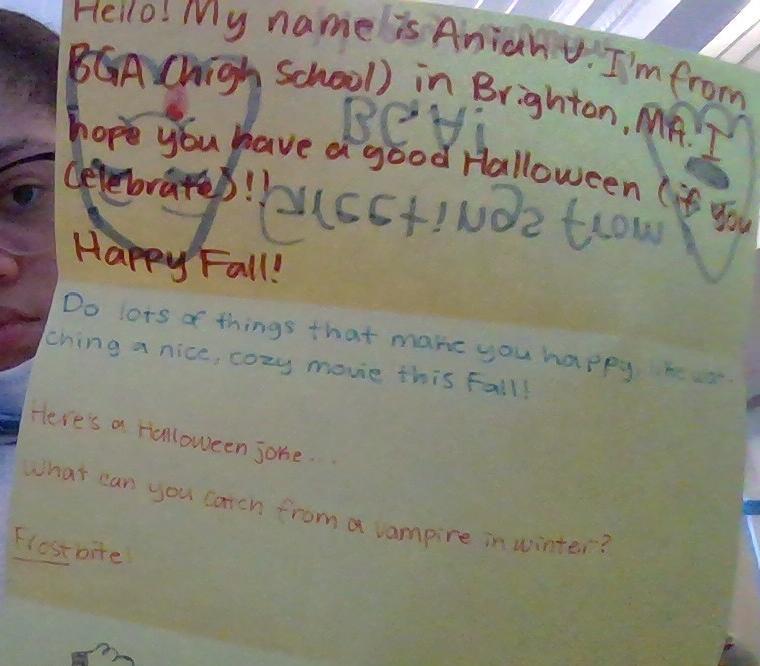 Hello! My name is Aniah V. I'm from
BGA (high school) in Brighton, MA. I
hope you have a good Halloween (if you
celebrate)!!
Happy Fall!
Do lots of things that make you happy, like wat-
ching a nice, cozy movie this Fall!
Here's a Halloween joke...
What can you catch from a vampire in winter?
Frostbite!
Greetings from
BGA!